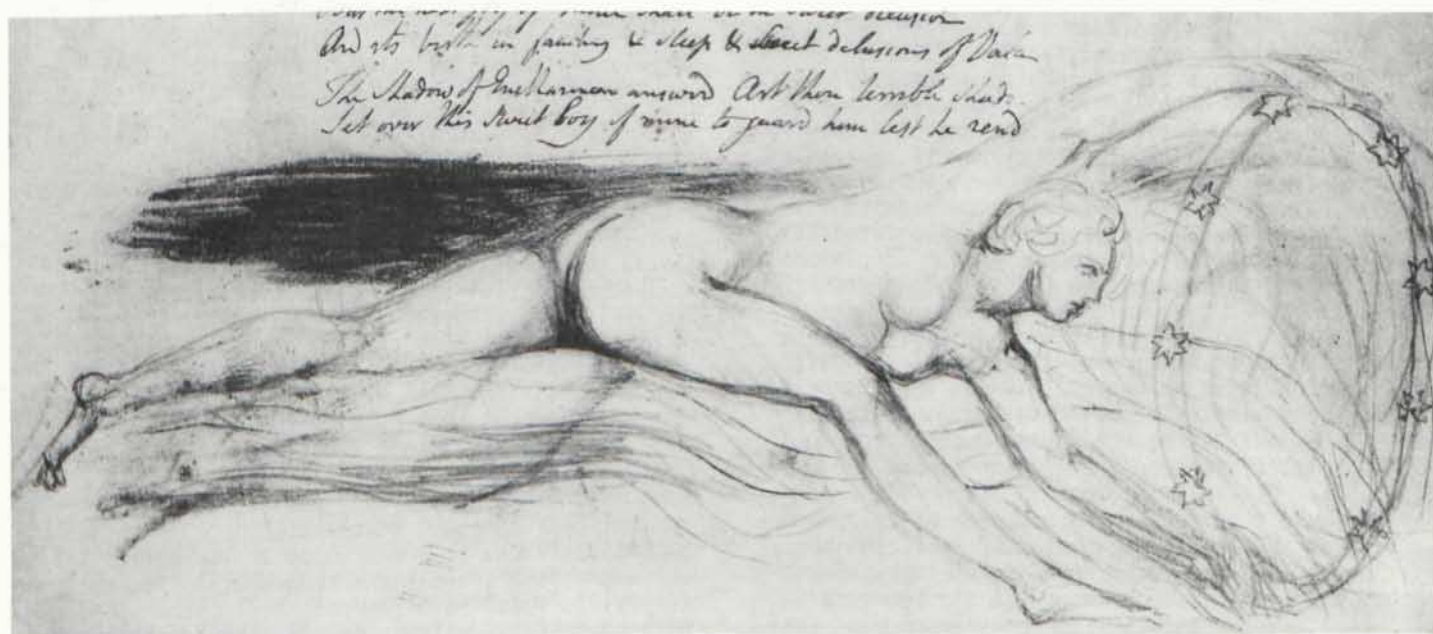 joy of thine shall be in sweet delusion
And its birth in fainting & sleep & sweet delusions of Vala
The Shadow of Enitharmon answerd Art thou terrible Shade
Set over this sweet boy of mine to guard him lest he rend